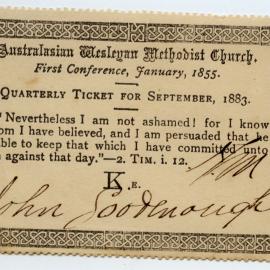 Australasian Wesleyan Methodist Church.
First Conference, January, 1855.
QUARTERLY TICKET FOR SEPTEMBER, 1883.
"Nevertheless I am not ashamed! for I know
om I have believed, and I am persuaded that he
ble to keep that which I have committed unto
against that day."—2. TIM. i. 12.
K.E.
John Goodenough